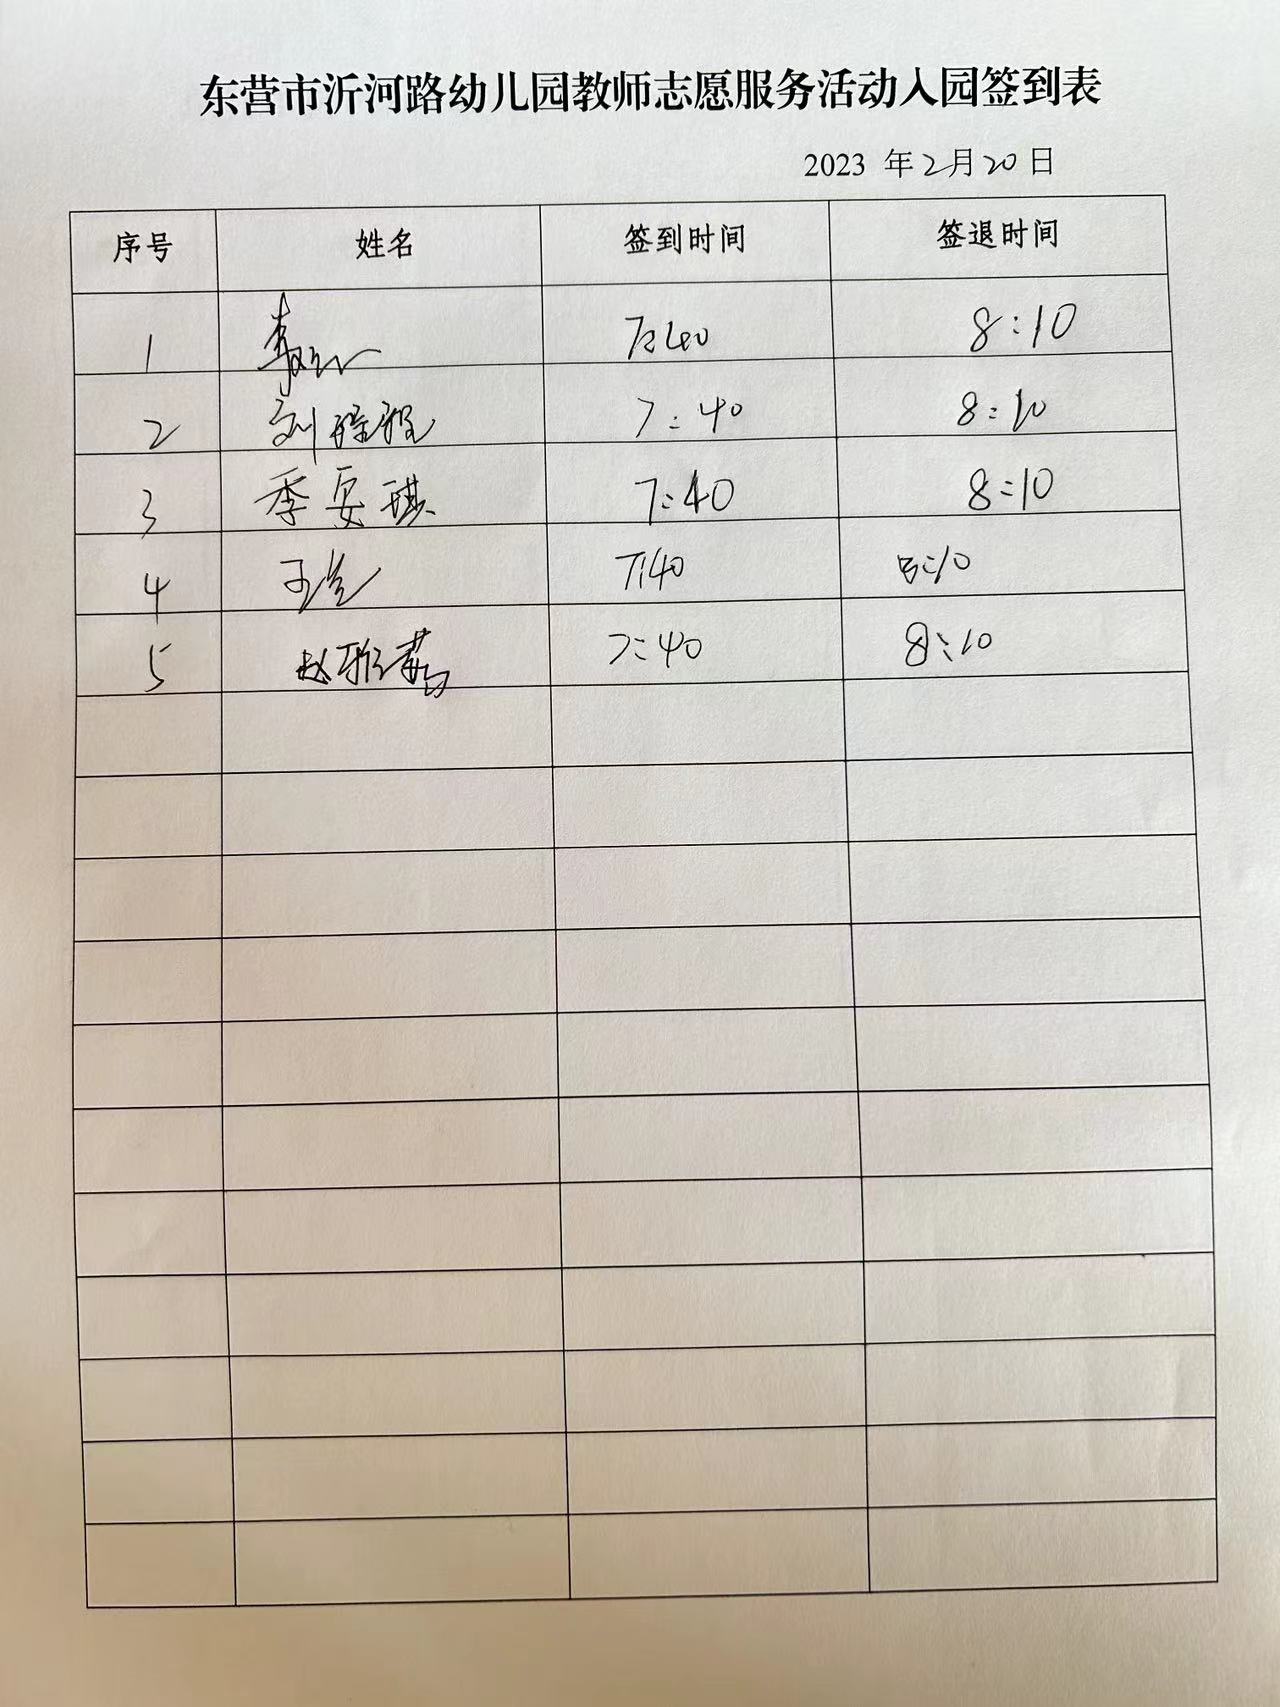 东营市沂河路幼儿园教师志愿服务活动入园签到表
2023 年 2 月 20 日
序号 姓名 签到时间 签退时间
1 7:40 8:10
2 刘 7:40 8:10
3 季安琪 7:40 8:10
4 王 7:40 8:10
5 赵雅菊 7:40 8:10